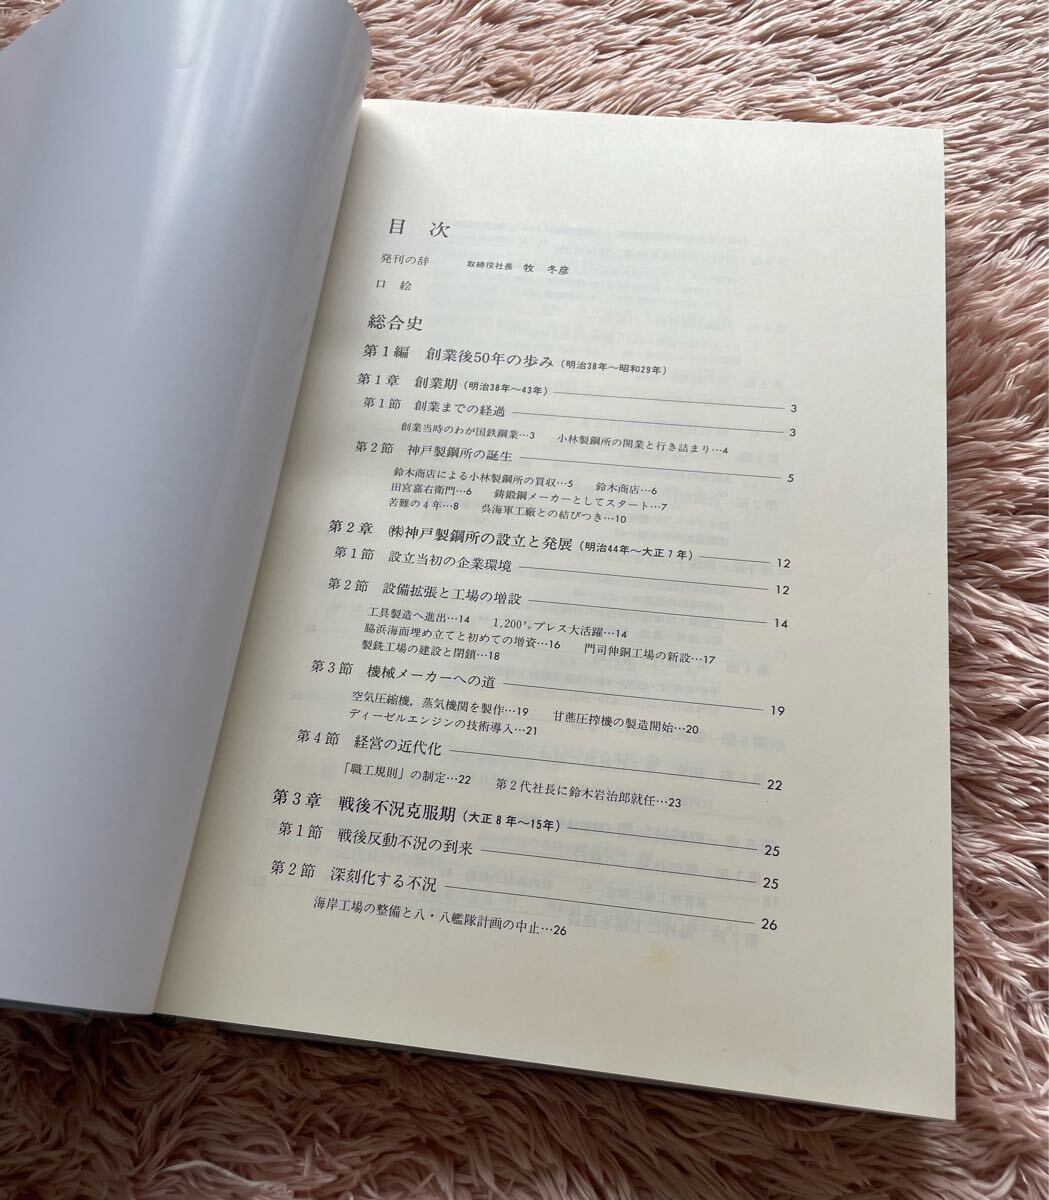 目 次
発刊の辞 取締役社長 牧 冬彦
口 絵
総合史
第1編 創業後50年の歩み(明治38年〜昭和29年)
第1章 創業期(明治38年〜43年) 3
第1節 創業までの経過 3
創業当時のわが国鉄鋼業…3 小林製鋼所の開業と行き詰まり…4
第2節 神戸製鋼所の誕生 5
鈴木商店による小林製鋼所の買収…5 鈴木商店…6
田宮嘉右衛門…6 鋳鍛鋼メーカーとしてスタート…7
苦難の4年…8 呉海軍工廠との結びつき…10
第2章 ㈱神戸製鋼所の設立と発展(明治44年〜大正7年) 12
第1節 設立当初の企業環境 12
第2節 設備拡張と工場の増設 14
工具製造へ進出…14 1,200㌧プレス大活躍…14
脇浜海面埋め立てと初めての増資…16 門司伸銅工場の新設…17
製銑工場の建設と閉鎖…18
第3節 機械メーカーへの道 19
空気圧縮機，蒸気機関を製作…19 甘蔗圧搾機の製造開始…20
ディーゼルエンジンの技術導入…21
第4節 経営の近代化 22
「職工規則」の制定…22 第2代社長に鈴木岩治郎就任…23
第3章 戦後不況克服期(大正8年〜15年) 25
第1節 戦後反動不況の到来 25
第2節 深刻化する不況 26
海岸工場の整備と八・八艦隊計画の中止…26